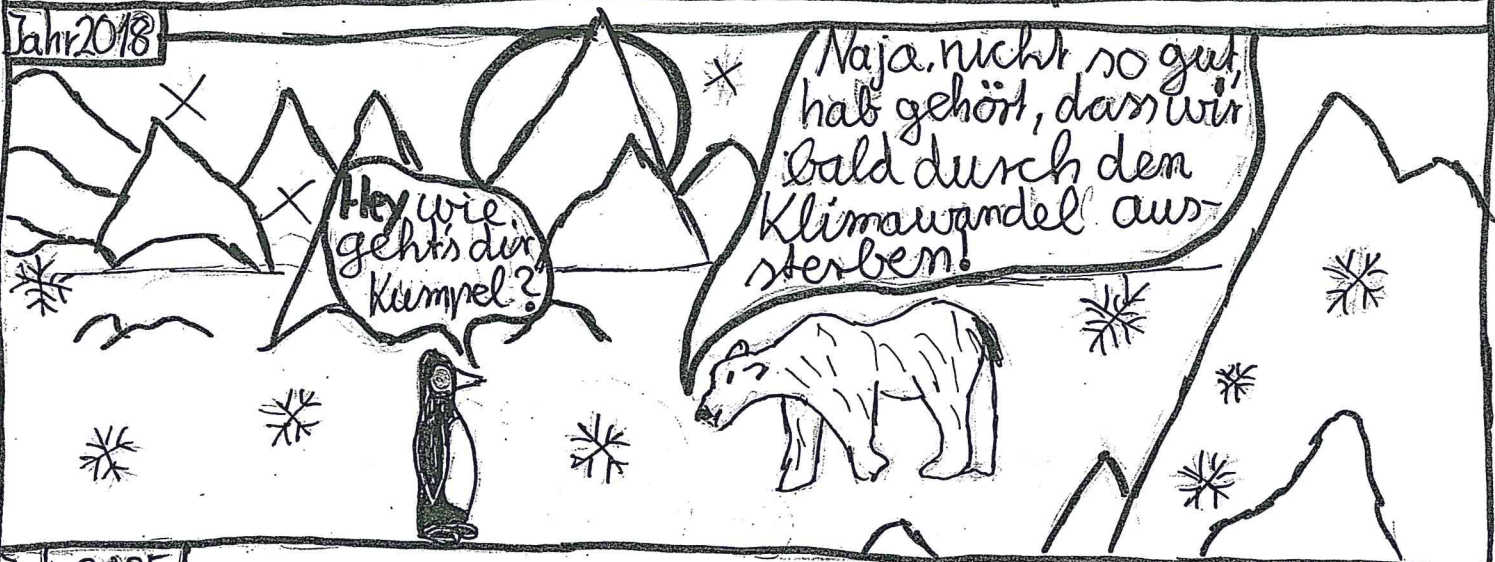 Jahr 2018
Hey, wie
geht's dir
Kumpel?
Naja, nicht so gut,
hab gehört, dass wir
bald durch den
Klimawandel aus-
sterben!